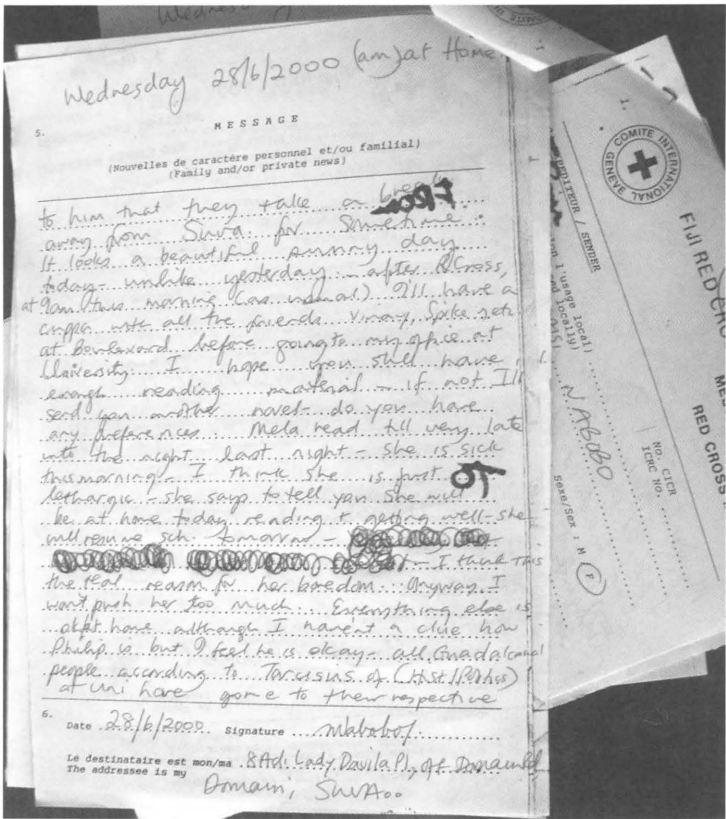 Wednesday 28/6/2000 (am) at Home
5.
MESSAGE
(Nouvelles de caractère personnel et/ou familial)
(Family and/or private news)
to him that they take a break
FROM
away from Suva for sometime.
It looks a beautiful sunny day
today - unlike yesterday - after R Cross,
at 9am this morning (as usual) I'll have a
cuppa with all the friends Vinay, Spike etc
at Boulevard before going to my office at
University. I hope you still have
enough reading material - if not I'll
send you another novel - do you have
any preferences. Mela read till very late
into the night last night - she is sick
this morning - I think she is just
TO
lethargic - she says to tell you she will
be at home today reading & getting well - she
will resume sch tomorrow -
- I think this
the real reason for her boredom. Anyway I
won't push her too much. Everything else is
at home although I haven't a clue how
Philip is but I feel he is okay - all Guadalcanal
people according to Tarcisius of (Hist/Politics)
at Uni have gone to their respective
6.
Date 28/6/2000 Signature
Le destinataire est mon/ma 8 Adi Lady Davila Pl, off Domain Rd
The addressee is my
Domain, Suva..
COMITE INTERNATIONAL
GENEVE
EXPEDITEUR / SENDER
l'usage local)
locally)
NABOBO
NO. CICR
ICRC NO.
Sexe/Sex : M F
FIJI RED
RED CROSS